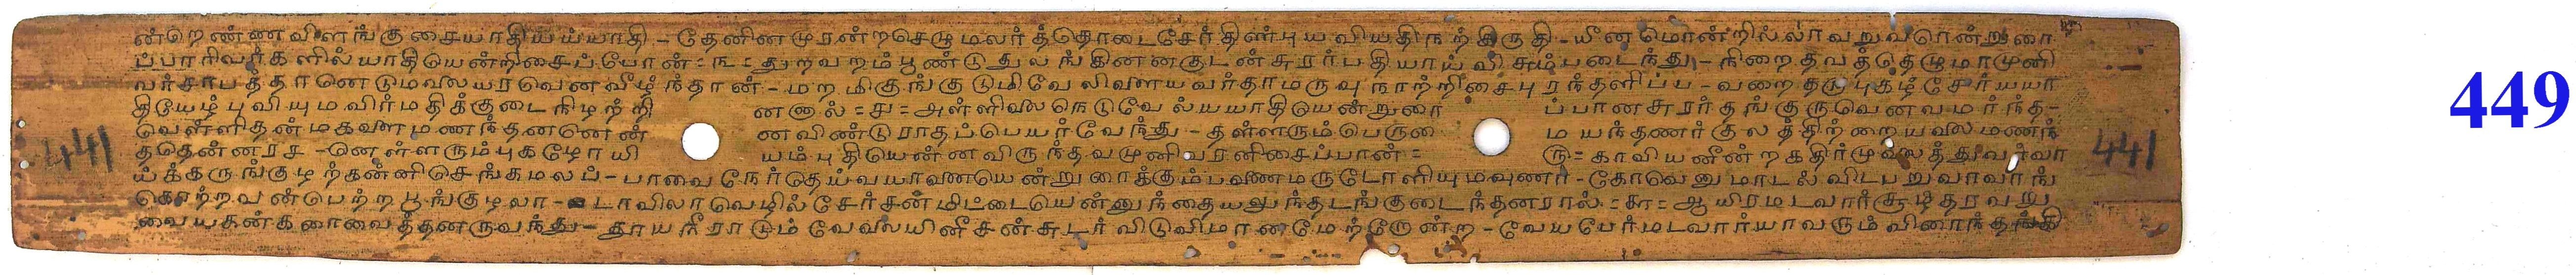 ன்றெண்ணவிளங்குசையாதியய்யாதி - தேனினமுரன்றசெழுமலர்த்தொடைசேர்திண்புயவியதிநற்கிருதி - யீனமொன்றில்லாவறுவரொன்றுரை
ப்பாரிவர்களில்யாதியென்றிசைப்போன் = ௩ = துறவறம்பூண்டுதுலங்கினனகுடன்சுரர்பதியாய்விசும்படைந்து - நிறைதவத்தெழுமாமுனி
வர்சாபத்தானெடுமவலயரவெனவீழ்ந்தான் - மறமிகுங்குடுமிவேலிவளையவர்தாமருவுநாற்றிசைபுரந்தளிப்ப - வறைதருபுகழ்சேர்யயா
தியேழ்புவியுமவிர்மதிக்குடைநிழற்றி னனால் = ௪ = அள்ளிலைநெடுவேல்யயாதியென்றுரை ப்பானசுரர்தங்குருவெனவமர்ந்த -
வெள்ளிதன்மகளைமணந்தனனென் னவிண்டுராதப்பெயர்வேந்து - தள்ளரும்பெருமை மயந்தணர்குலத்திற்றையலைமணந்
ததென்னரச - வெள்ளரும்புகழோயி யம்புதியென்னவிருந்தவமுனிவரனிசைப்பான் = ௫ = காவியனீன்றகதிர்முலைத்துவர்வா
ய்க்கருங்குழற்கன்னிசெங்கமலப் - பாவைநேர்தெய்வயாவணையென்றுரைக்கும்பவணமருடோளியுமவுணர் - கோவெனுமாடல்விடபறுவாவாங்
கொற்றவன்பெற்றபூங்குழலா - டாவிலாவெழில்சேர்சன்மிட்டையென்னுந்தையலுந்தடங்குடைந்தனரால் = ௬ = ஆயிரமடவார்சூழ்தரவறு
வையகன்கரைவைத்தனருவந்து - தூயநீராடும்வேலையினீசன்சுடர்விடுவிமானமேற்றோன்ற - வேயபேர்மடவார்யாவரும்விரைந்தங்கி
441
441
449